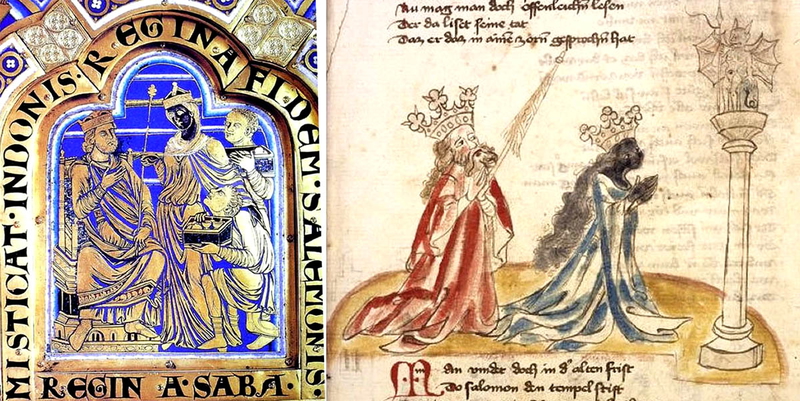 MISTICAT · INDONIS · REGINA FIDEM · SALEMONIS ·
REGIN A · SABA ·
Nu mag man doch offenleichn lesen
Der da liset seine tat
Daz er daz in aine zorn gesprochn hat
Man vindt doch in d' alten frist
Do salomon den tempel stift